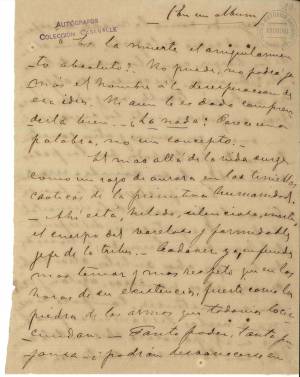 (En un album)
AUTÓGRAFOS
COLECCIÓN
Es la muerte el aniquilamien-
to absoluto?. No puede, no podrá ja-
más el hombre a la desesperación de
esa idea. Ni aun le es dado compren-
derla bien. — ¡La nada! Parece una
palabra, no un concepto. —
El mas allá de la vida surge
como un rayo de aurora en las tinieblas
caoticas de la primitiva humanidad.
— Ahi está, helado, silencioso, inerte
el cuerpo del valeroso y formidable
jefe de la tribu. — Cadáver ya, infunde
mas temor y mas respeto que en las
horas de su existencia, fuerte como la
piedra de las armas que todavia lo cir-
cundan. — Tanto poder, tanta pu-
janza — podrán desvanecerse en